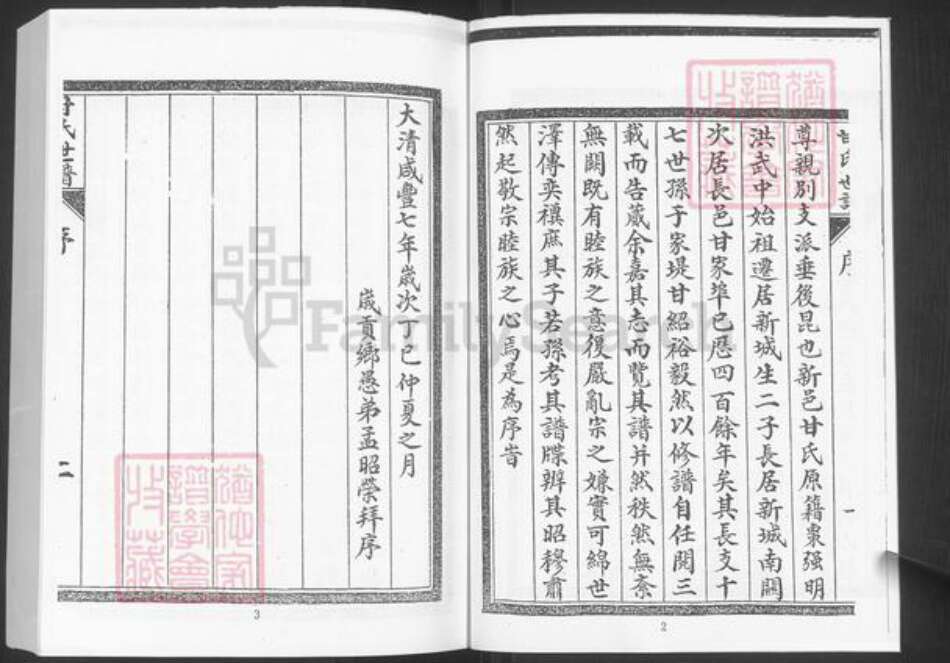 甘氏世譜
序
一
尊親別支派垂後昆也新邑甘氏原籍棗强明
洪武中始祖遷居新城生二子長居新城南關
次居長邑甘家埠已歷四百餘年矣其長支十
七世孫于家堤甘紹裕毅然以修譜自任閱三
載而告蕆余嘉其志而覽其譜井然秩然無紊
無闕既有睦族之意復嚴亂宗之嫌實可綿世
澤傳奕禩庶其子若孫考其譜牒辨其昭穆肅
然起敬宗睦族之心焉是為序旹
2
大清咸豐七年歲次丁巳仲夏之月
歲貢鄉愚弟孟昭榮拜序
甘氏世譜
序
二
3
FamilySearch